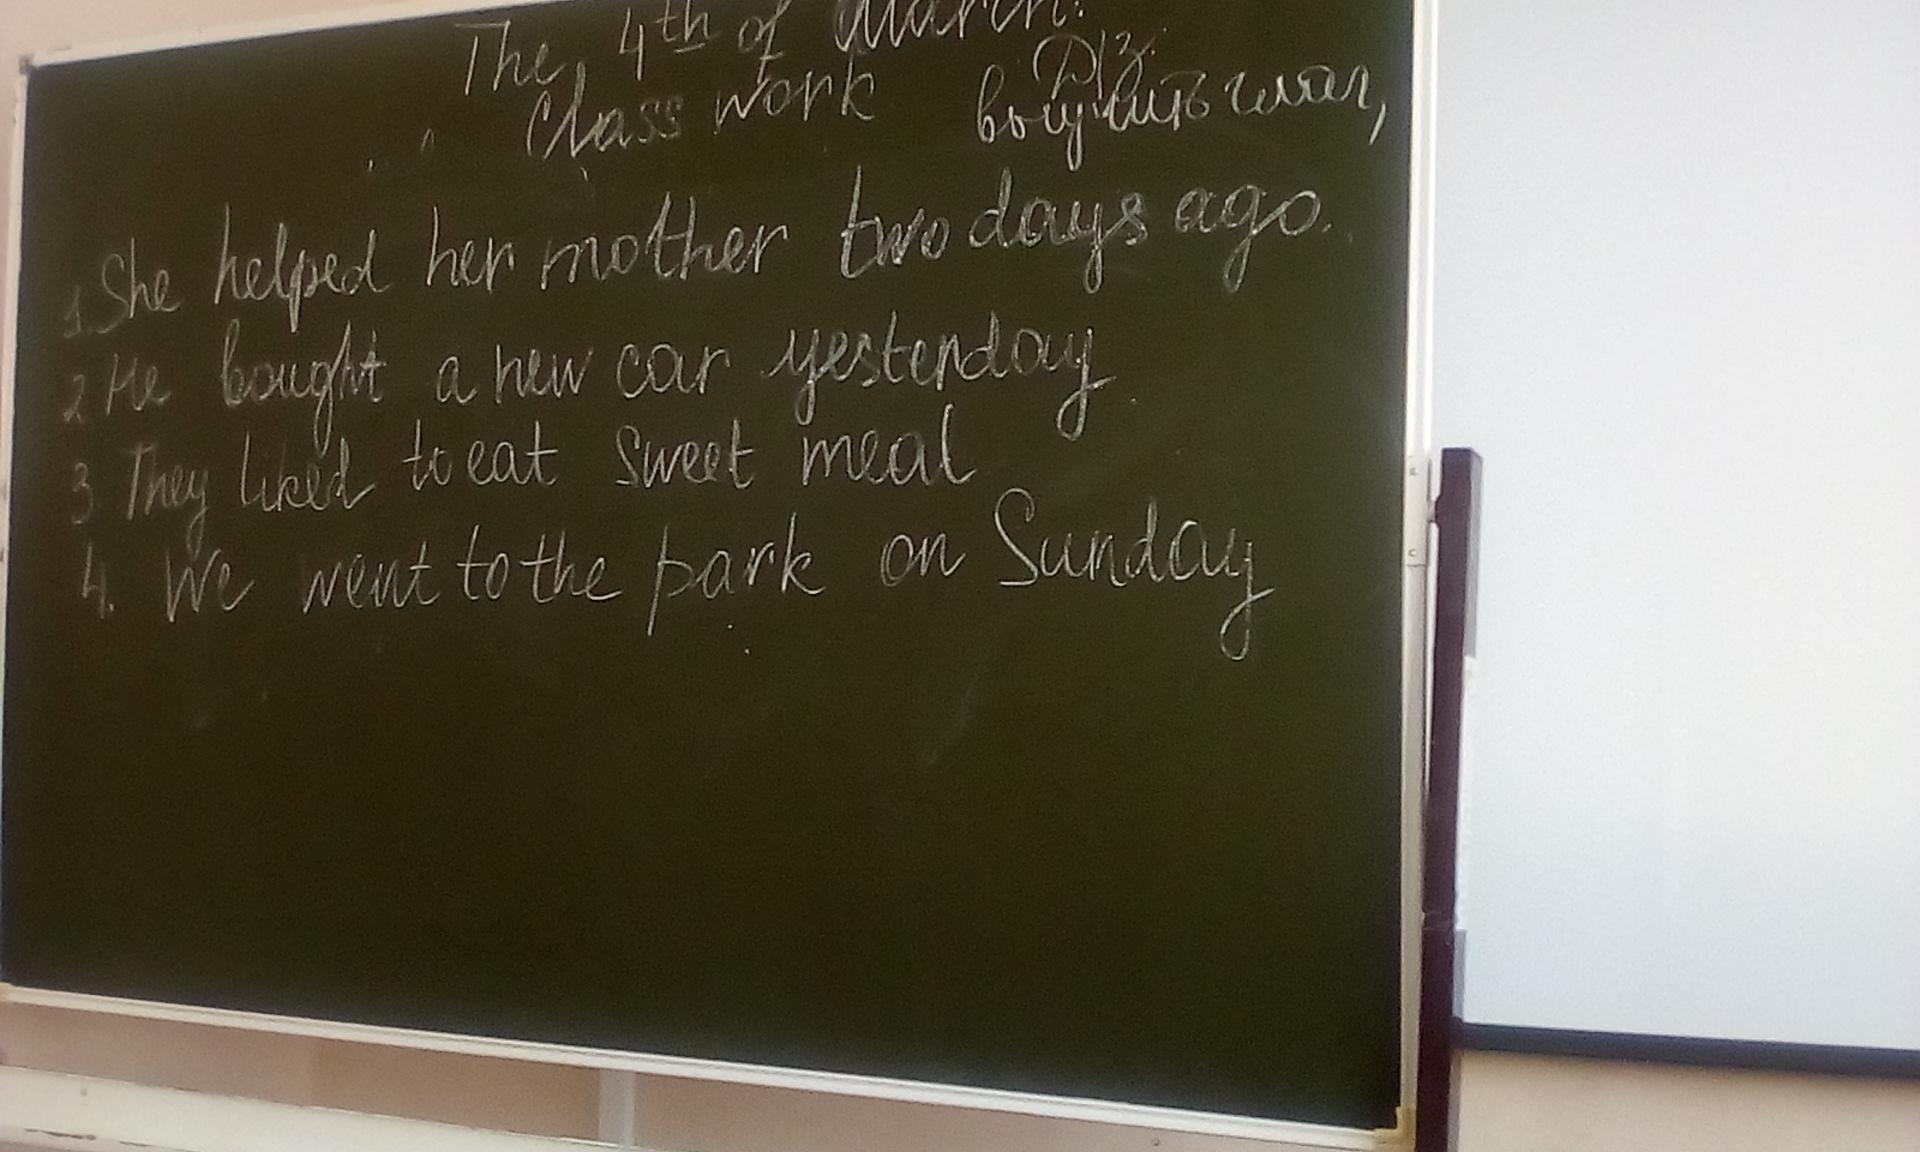 The 4th of March.
Class work
Д/з.
выучить глаг,
1. She helped her mother two days ago.
2 He bought a new car yesterday.
3. They liked to eat sweet meal
4. We went to the park on Sunday